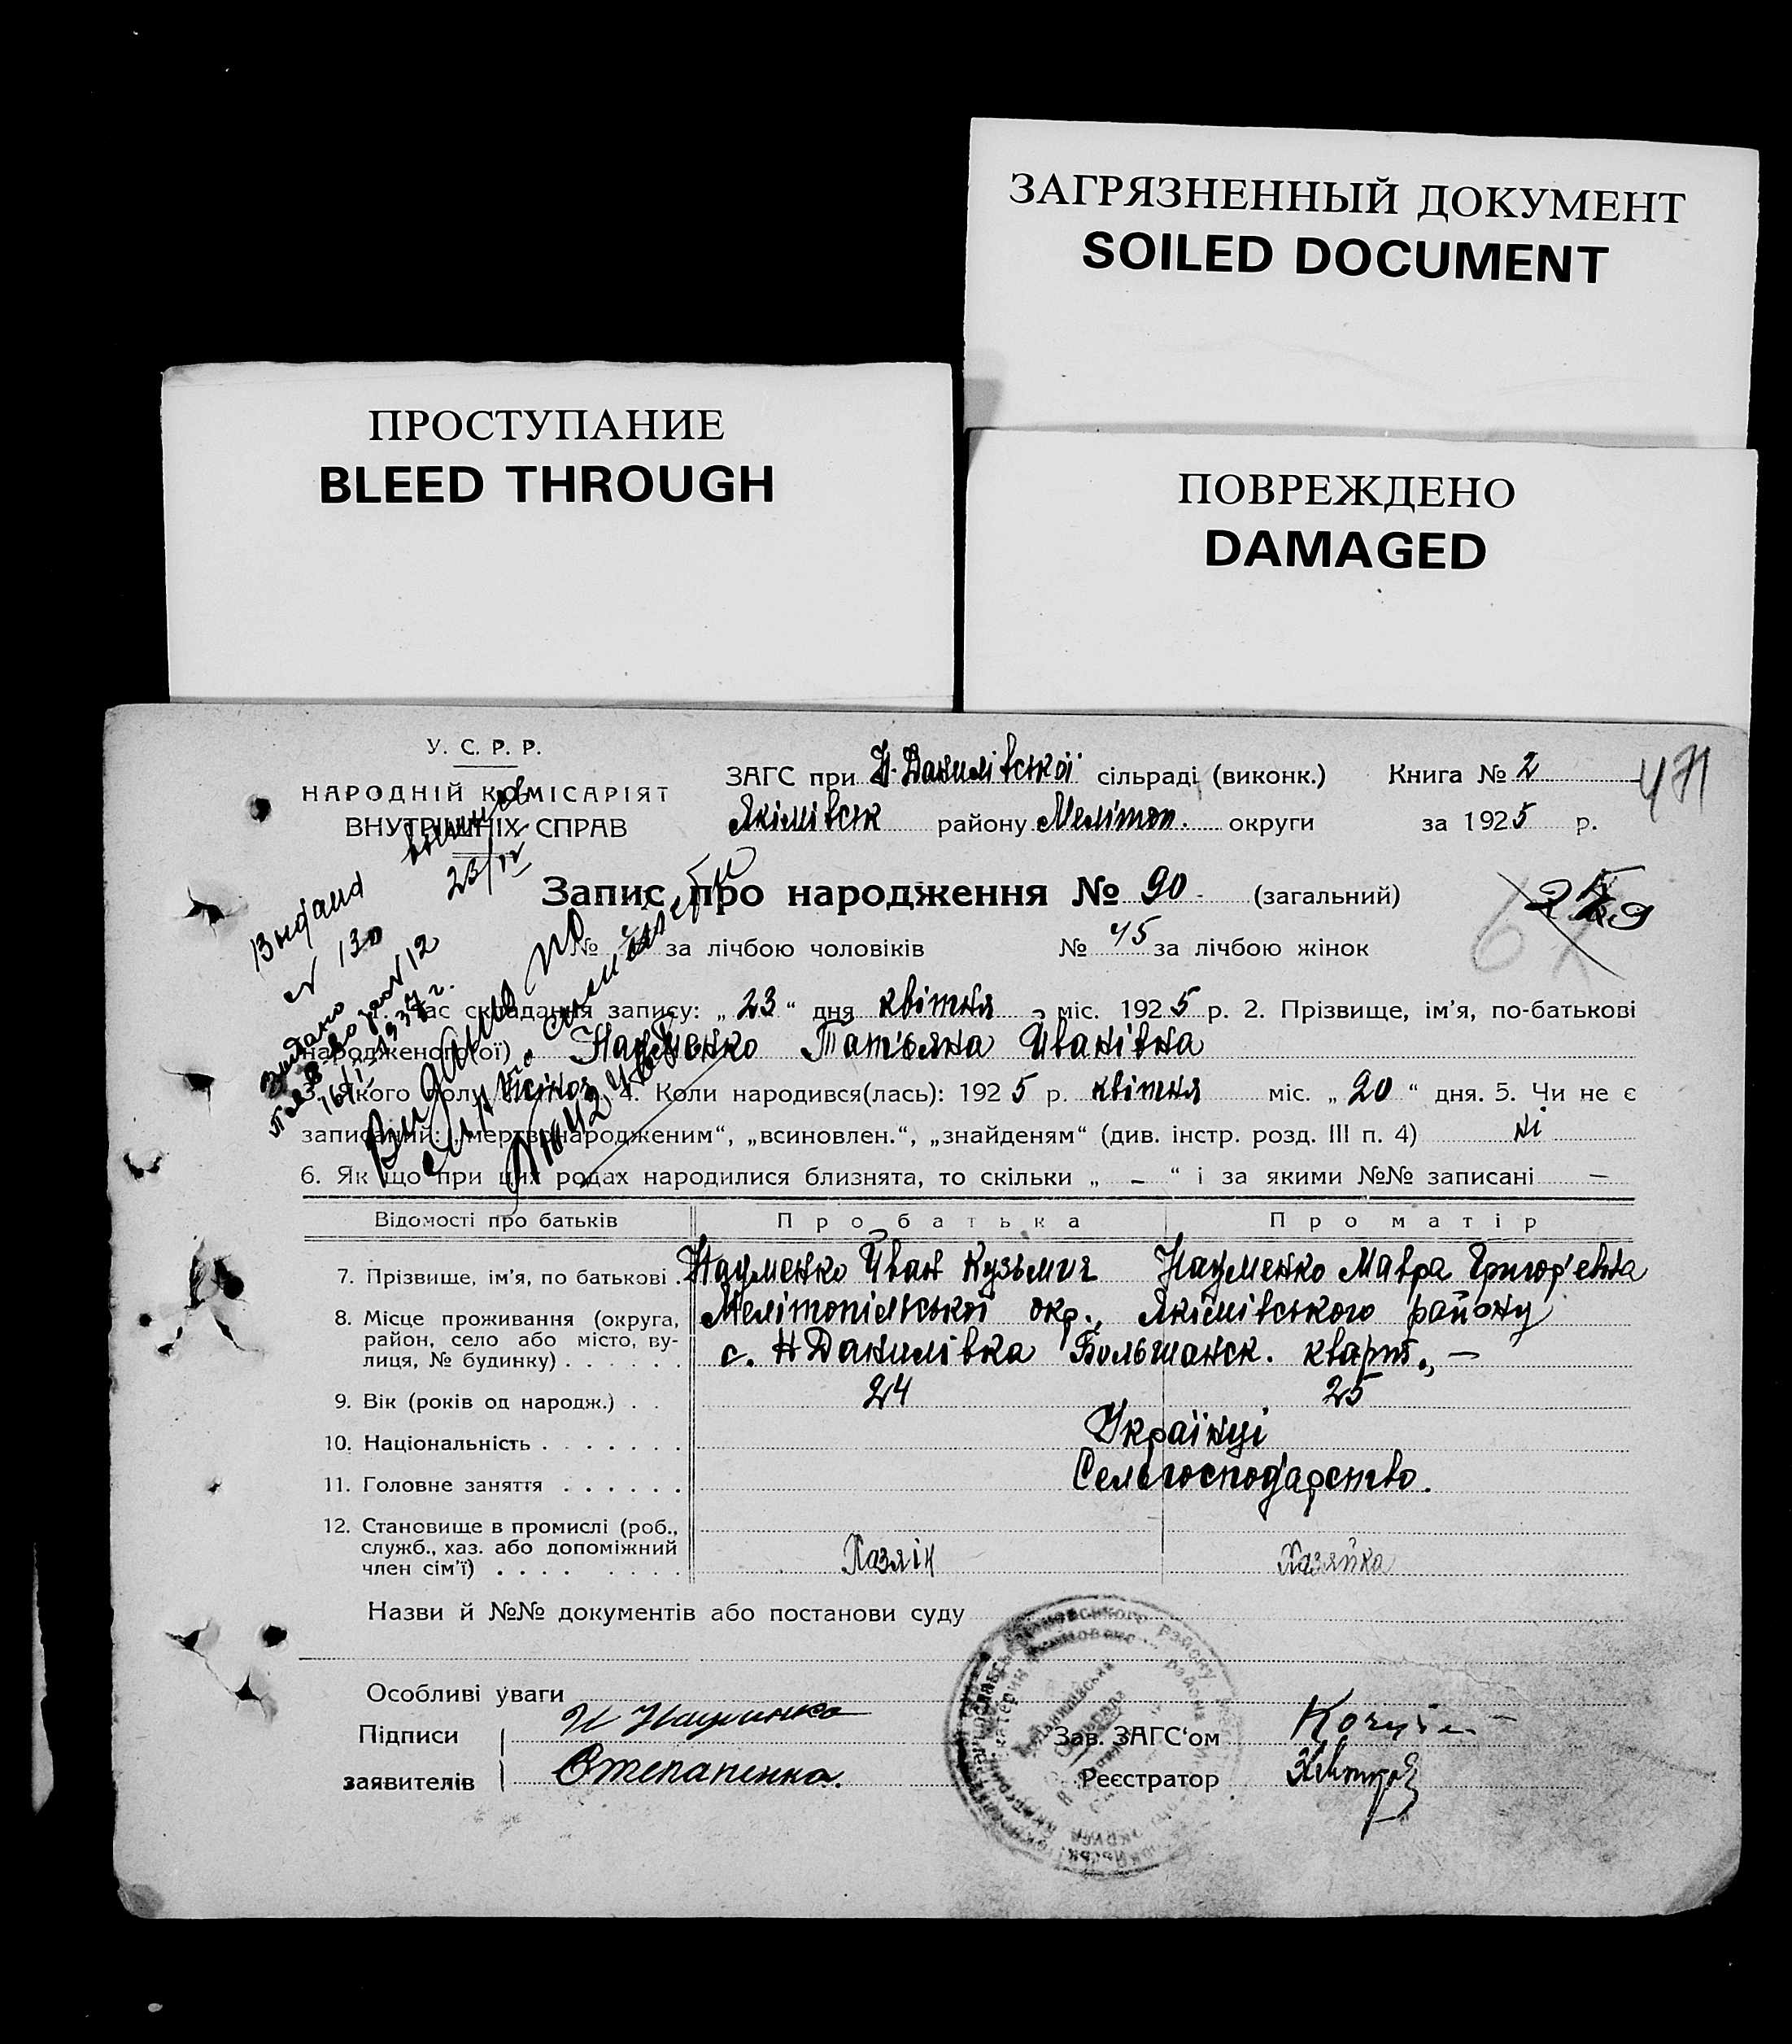 ЗАГРЯЗНЕННЫЙ ДОКУМЕНТ
SOILED DOCUMENT
ПРОСТУПАНИЕ
BLEED THROUGH
ПОВРЕЖДЕНО
DAMAGED
У. С. Р. Р.
НАРОДНІЙ КОМІСАРІЯТ
ВНУТРІШНІХ СПРАВ
ЗАГС при Н-Данилівської сільраді (виконк.) Книга № 2
471
Якімівськ району Меліт��п. округи за 1925 р.
Запис про народження № 90 (загальний)
№ за лічбою чоловіків № 45 за лічбою жінок
Видана
№ 130
23/IV
1. Час складання запису: „ 23 “ дня квітня міс. 1925 р. 2. Прізвище, ім’я, по-батькові
народженого(ої) Науменко Тат'яна Іванівна
3. Якого полу жіноч. 4. Коли народився(лась): 1925 р. квітня міс. „ 20 “ дня. 5. Чи не є
записаний: „мертвонародженим“, „всиновлен.“, „знайденям“ (див. інстр. розд. III п. 4) ні
6. Як що при цих родах народилися близнята, то скільки „ – “ і за якими №№ записані –
Відомості про батьків Про батька Про матір
7. Прізвище, ім’я, по батькові . Науменко Іван Кузьмич Науменко Мавра Григор'евна
8. Місце проживання (округа, район, село або місто, вулиця, № будинку) . . . . . . Мелітопільської окр., Якімівського району
с. Н Данилівка Большанск. кварт., –
9. Вік (років од народж.) . . 24 25
10. Національність . . . . . . . Українці
11. Головне заняття . . . . . . Сельгосподарство.
12. Становище в промислі (роб.,
служб., хаз. або допоміжний
член сім’ї) . . . . . . . . Хазяїн Хазяйка
Назви й №№ документів або постанови суду
Особливі уваги
Підписи И Науминко
заявителів Степаненко.
Зав. ЗАГС‘ом
Реєстратор